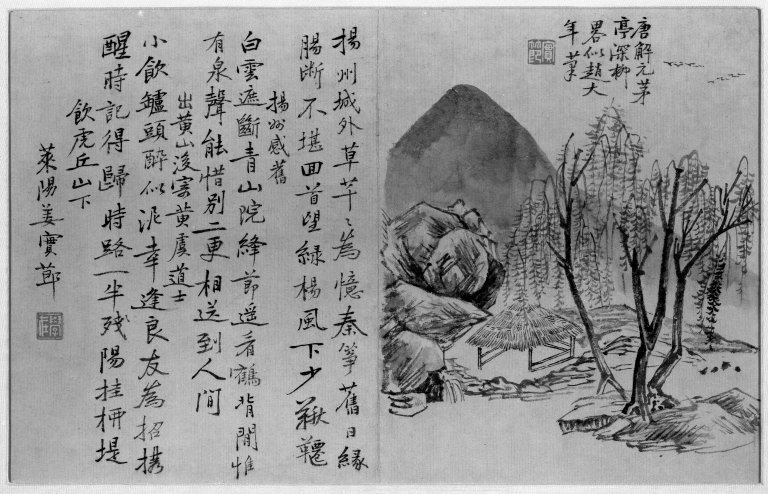 唐解元茅
亭深柳
畧似趙大
年筆
揚州城外草芊〻為憶秦箏舊日緣
腸斷不堪回首望綠楊風下少鞦韆
揚州感舊
白雲遮斷青山院絳節遥看鶴背閒惟
有泉聲能惜别二更相送到人間
出黄山後寄黄虞道士
小飲鑪頭醉似泥幸逢良友為招擕
醒時記得歸時路一半殘陽挂柳堤
飲虎丘山下
萊陽姜實莭